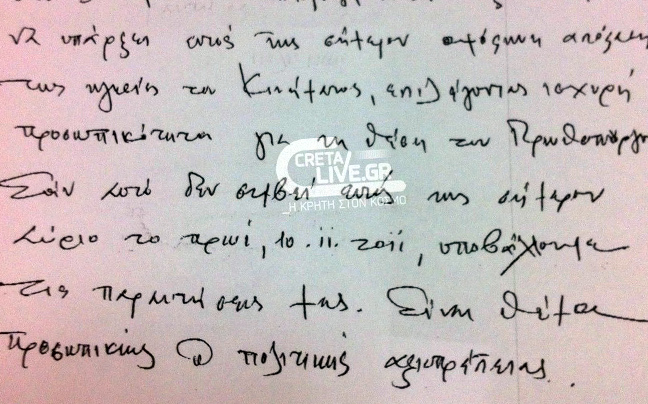 να υπάρξει εντός της σήμερον ομόφωνη απόφαση
της ηγεσίας του Κινήματος, επιλέγοντας ισχυρή
προσωπικότητα για τη θέση του Πρωθυπουργού
CRETA
LIVE.GR
_Η ΚΡΗΤΗ ΣΤΟΝ ΚΟΣΜΟ
Εάν αυτό δεν συμβεί εντός της σήμερον
αύριο το πρωί, 10.11.2011, υποβάλλουμε
τις παραιτήσεις μας. Είναι θέμα
προσωπικής & πολιτικής αξιοπρέπειας.